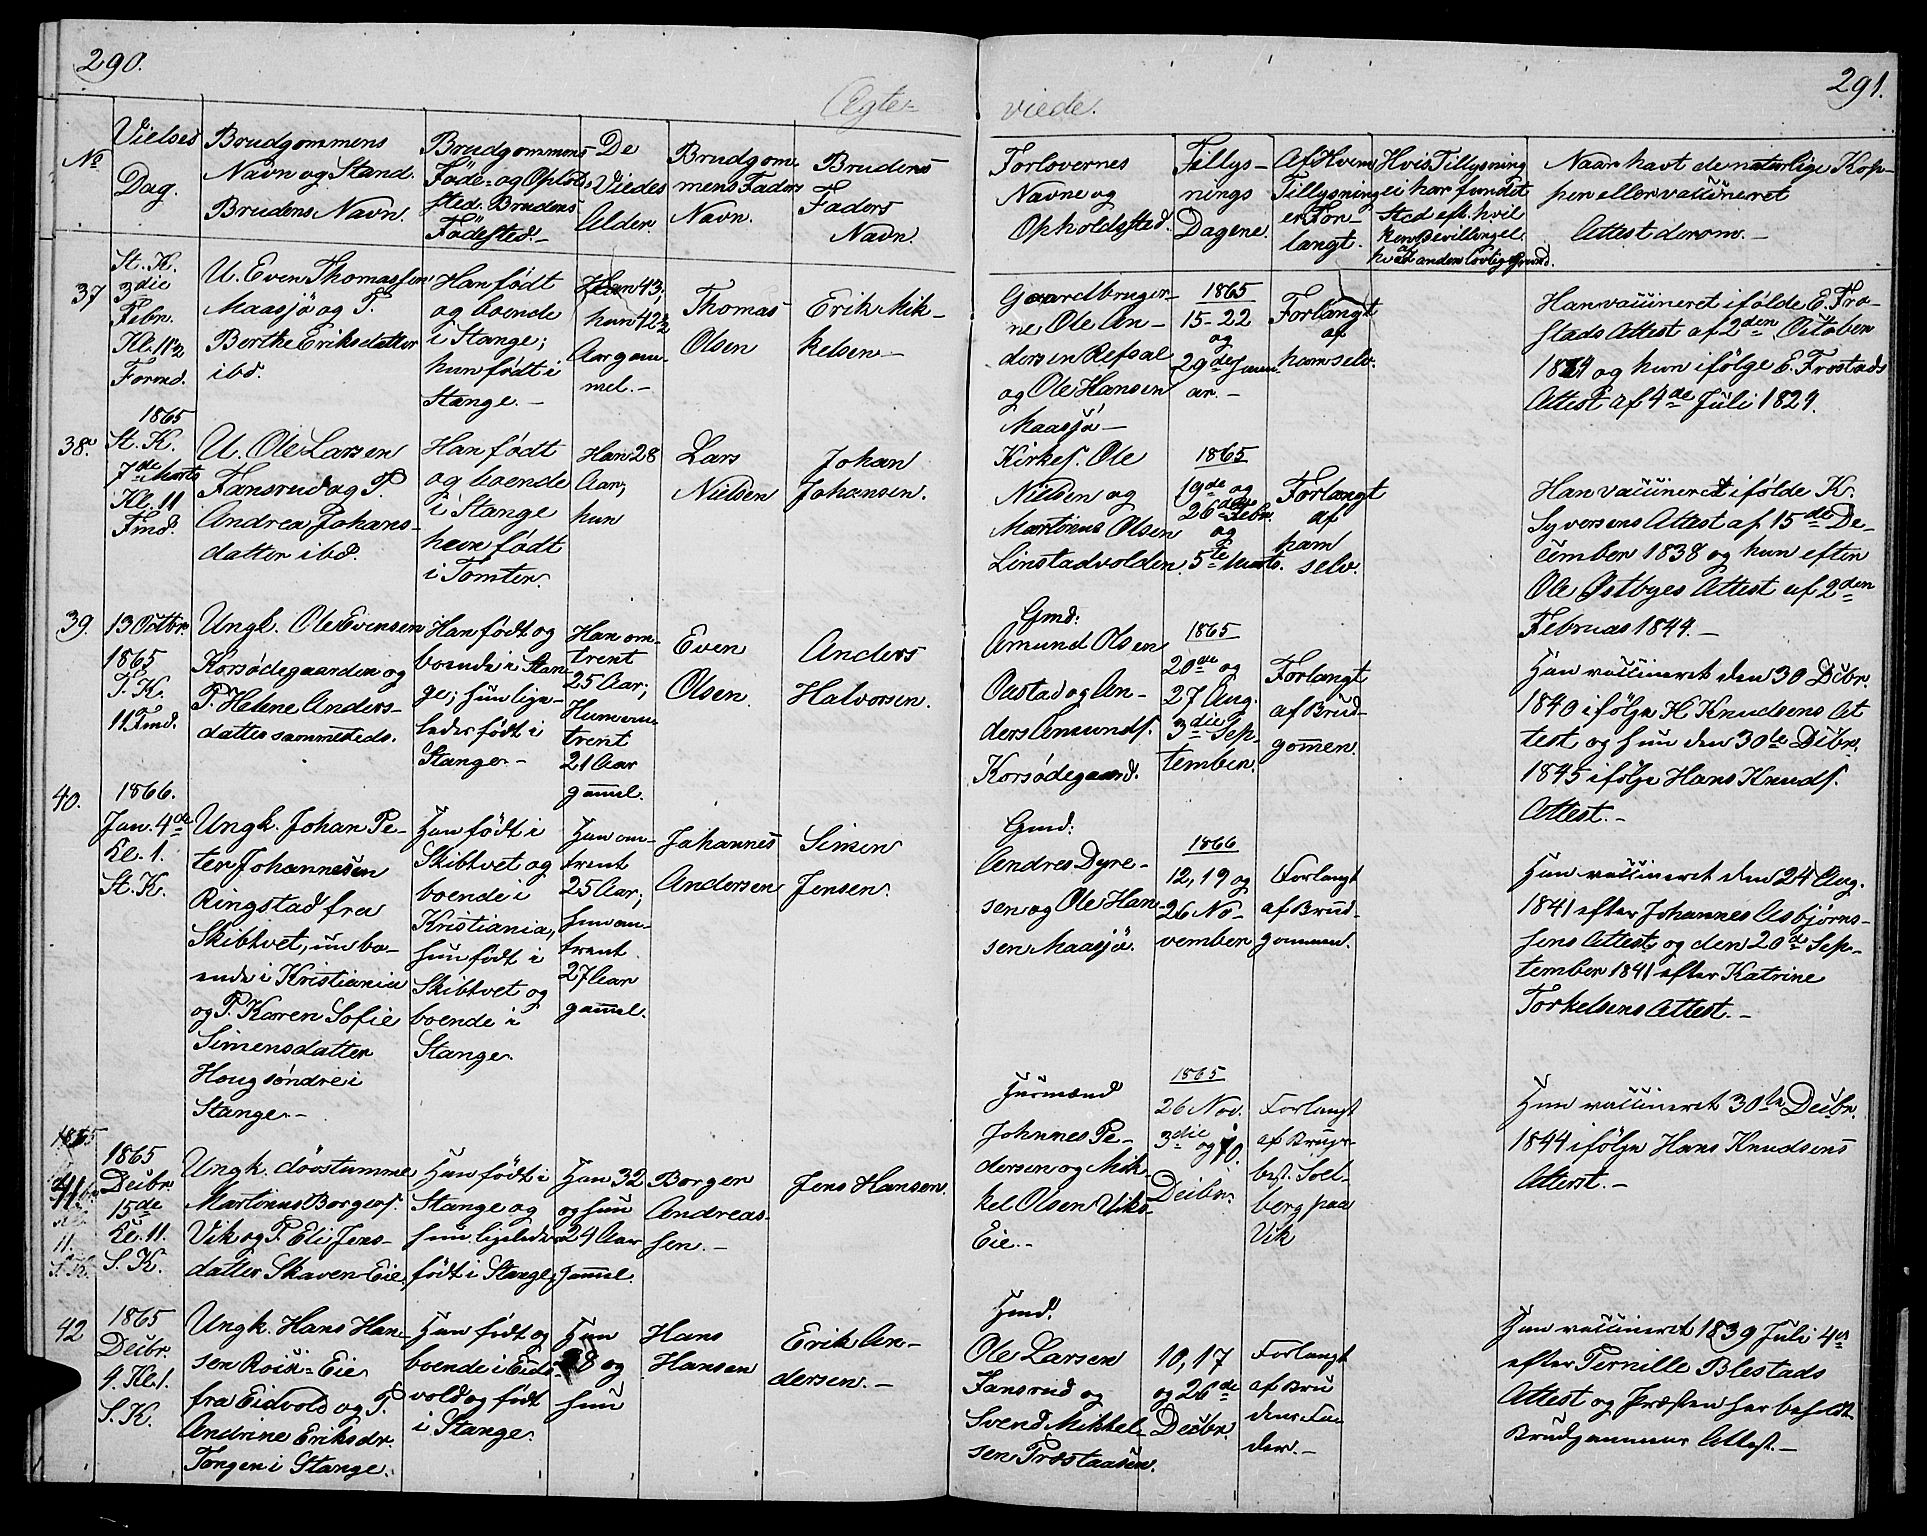 290.
291.
Ægte-
viede.
No
Vielses
Dag.
Brudgommens
Navn og Stand.
Brudens Navn.
Brudgommens
Føde- og Opholds
sted. Brudens
Fødested.-
De
Viedes
Alder.
Brudgom
mens Faders
Navn.
Brudens
Faders
Navn.
Forlovernes
Navne og
Opholdssted.
Tillys-
nings
Dagene.
Af Hvem
Tillysning
er For-
langt.
Hvis Tillysning
ei har fundet
Sted eft. hvil
ken Bevilling el.
hvad anden lovlig Grund.
Naar havt de naturlige Kop-
per eller vaccineret
Attest derom.-
37
St. K.
3die
Febr.
Kl. 11½
Formd.
U. Even Thomassen
Maasjø og P.
Berthe Eriksdatter
ibd.
Han født
og boende
i Stange;
hun født i
Stange.-
Han 43,
hun 42½
Aar gam-
mel.-
Thomas
Olsen
Erik Mik-
kelsen.-
Gaardbruger-
ne Ole An-
dersen Refsal
og Ole Hansen
Maasjø-
1865
15-22
og
29de Janu-
ar.-
Forlangt
af
ham selv.
Han vaccineret ifølde E. Fro-
stads Attest af 2den October
og hun ifølge E. Frostads
Attest af 4de Juli 1829.
38.
1865
St. K.
7de Marts
Kl. 11
Fmd.
U. Ole Larsen
Fansrud og P.
Andrea Johans-
datter ibd.
Han født
og boende
i Stange
hun født
i Tomter.
Han 28
Aar;
hun
Lars
Nielsen
Johan
Johansen.
Kirkes. Ole
Nielsen og
Martinus Olsen
Linstadvolden.
1865
19de og
26de Febr.
og
5te Marts.
Forlangt
af
ham
selv.
Han vaccineret ifølde K.
Syversens Attest af 15de De-
cember 1838 og hun efter
Ole Østbyes Attest af 2den
Februar 1844.-
39.
13 Octbr.
1865
S. K.
11 Fmd.
Ungk. Ole Evensen
Korsødegaarden og
P. Helene Anders-
datter sammesteds.
Han født og
boende i Stan-
ge; hun lige-
ledes født i
Stange.-
Han om-
trent
25 Aar;
Hun om-
trent
21 Aar
gammel.
Even
Olsen.
Anders
Halvorsen.
Gmd:
Amund Olsen
Oustad og An-
ders Amunds.
Korsødegaard.
1865
20de og
27 Aug.
3die Sep-
tember.
Forlangt
af Brud-
gommen.
Han vaccineret den 30 Decbr.
1840 ifølge H. Knudsens At
test og hun den 30te Decbr.
1845 ifølge Hans Knuds.
Attest.-
40.
1866.
Jan. 4de
Kl. 1.
St. K.
Ungk. Johan Pe-
ter Johannesen
Ringstad fra
Skibtvet, nu bo-
ende i Kristiania
og P. Karen Sofie
Simensdatter
Houg søndre i
Stange.-
Han født i
Skibtvet og
boende i
Kristiania,
hun født i
Skibtvet og
boende i
Stange.
Han om-
trent
25 Aar;
hun om-
trent
27 Aar
gammel.
Johannes
Andersen
Simen
Jensen.
Gmd:
Andres Dyre-
sen og Ole Han-
sen Maasjø.
1866
12, 19 og
26 No-
vember
Forlangt
af Brud-
gommen.
Han vaccineret den 24 Aug.
1841 efter Johannes Asbjørns-
sens Attest og den 20de Sep-
tember 1841 efter Katrine
Torkelsens Attest.-
41
1865
Decbr.
15de
Kl. 11.
S. K.
Ungk. døvstumme
Martinus Borgers.
Vik og P. Eli Jens-
datter Skaven-Eie.
Han født i
Stange og
hun ligeledes
født i Stange,
Han 32
og hun
24 Aar
gammel.
Borger
Andreas-
sen.-
Jens Hansen.
Husmænd
Johnnes Pe-
dersen og Mik-
kel Olsen Viks-
Eie.-
1865
26 Nov.
3die og 10.
Decbr.
Forlangt
af Bruger-
best. Sol-
berg paa
Vik
Hun vaccineret 30te Decbr.
1844 ifølge Hans Knudsens
Attest.-
42
1865
Decbr.
9. Kl. 1.
S. K.
Ungk. Hans Han-
sen Roin-Eie
fra Eidvold og P.
Andrine Eriksdr.
Tangen i Stange.
Han født og
boende i Eids-
vold og født
i Stange.
Han
28 og
hun
Hans
Hansen
Erik An-
dersen.-
Hmd.
Ole Larsen
Fansrud og
Svend Mikkel-
sen Præstaasen.
10, 17
og 26de
Decbr.
Forlangt
af Bru
dens Fa-
der.-
Han vaccineret 1839 Juli 4de
efter Pernille Blestads
Attest og Præsten har beholdt
Brudgommens Attest.-